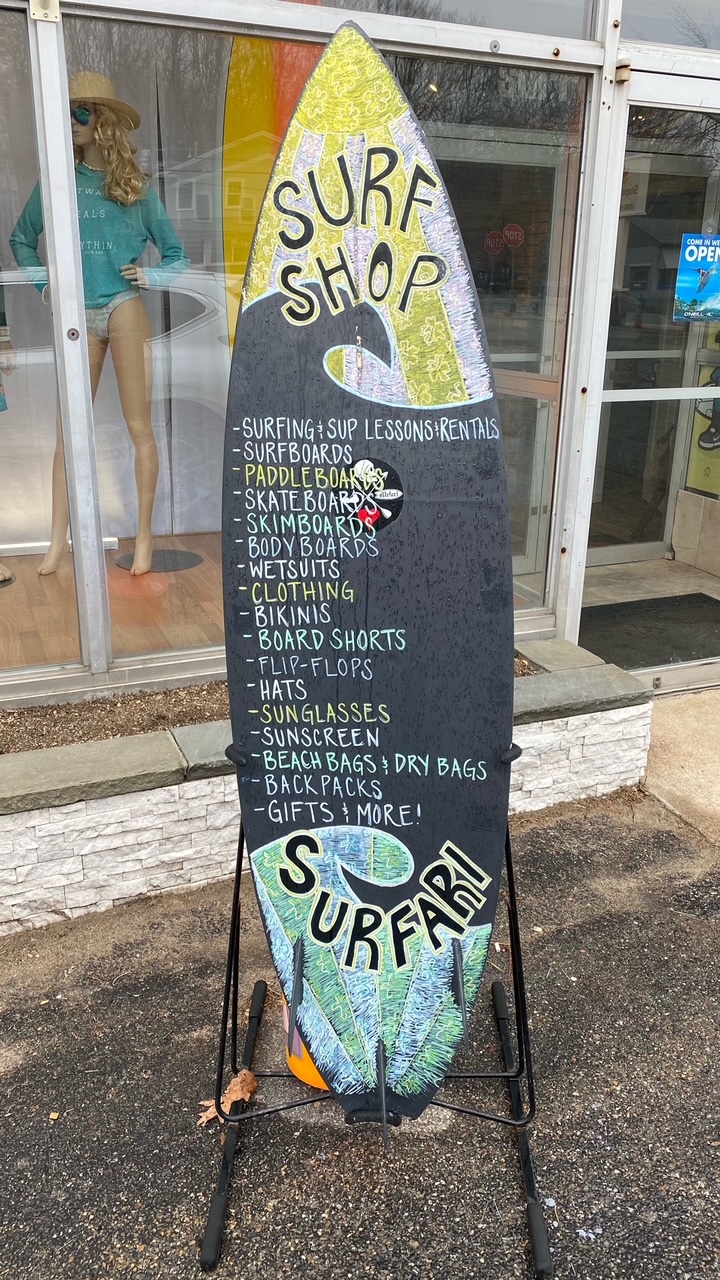 SURF
SHOP
-SURFING & SUP LESSONS & RENTALS
-SURFBOARDS
-PADDLEBOARDS
-SKATEBOARDS
-SKIMBOARDS
-BODYBOARDS
-WETSUITS
-CLOTHING
-BIKINIS
-BOARD SHORTS
-FLIP-FLOPS
-HATS
-SUNGLASSES
-SUNSCREEN
-BEACH BAGS & DRY BAGS
-BACKPACKS
-GIFTS & MORE!
SURFARI
COME IN WE
OPEN
O'NEILL
STOP
STOP